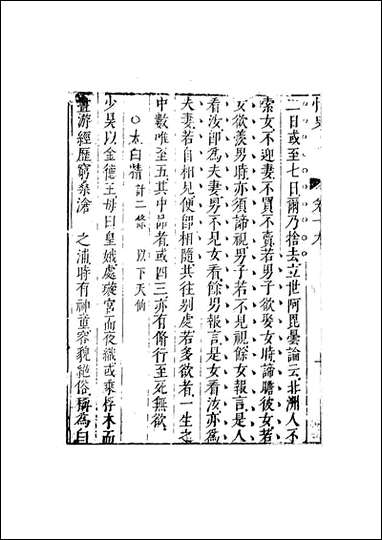 情史 卷十九
二日或至七日爾乃捨去立世阿毘曇論云非洲人不
索女不迎妻不買不賣若男子欲娶女時諦瞻彼女若
女欲羨男時亦須諦視男子若不見視餘女報言是人
看汝卽為夫妻男不見女看餘男報言是女看汝亦為
夫妻若自相見便卽相隨共往別處若多欲者一生之
中數唯至五其中品者或四三亦有脩行至死無欲
○太白精 計二條 以下天仙
少昊以金德王母曰皇娥處璇宮而夜織或乘桴木而
晝游經歷窮桑滄 之浦時有神童容貌絕俗稱為白